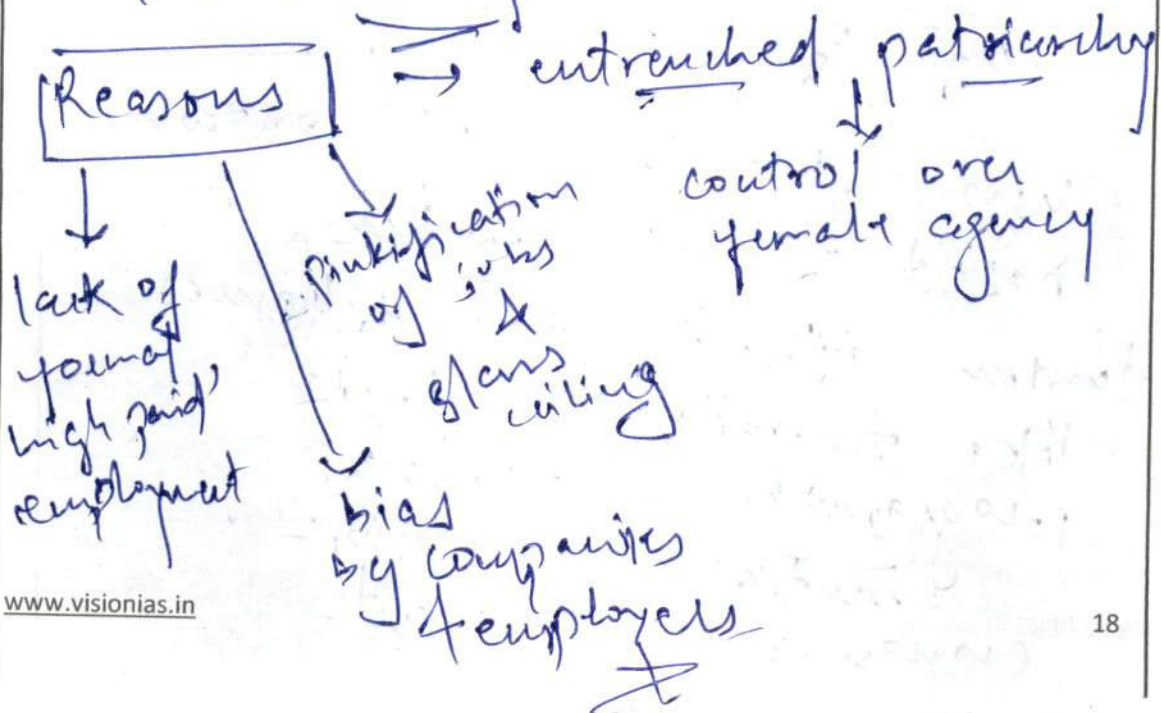 Reasons
→ entrenched patriarchy
control over
female agency
lack of
formal
high paid
employment
Pinkification
of jobs
&
glass
ceiling
bias
by companies
& employers
www.visionias.in
18